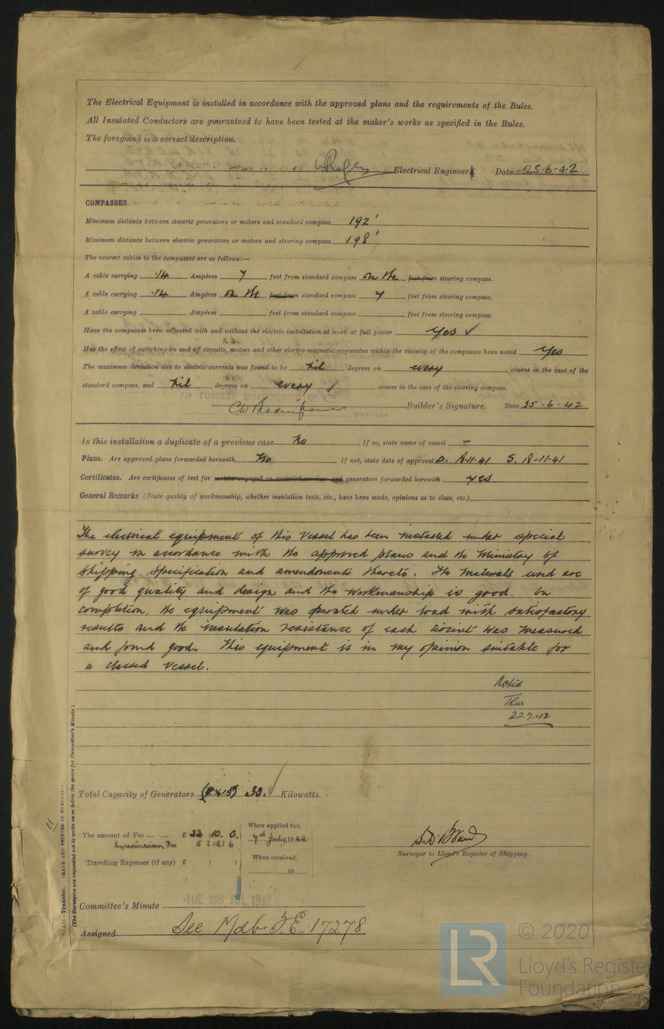 The Electrical Equipment is installed in accordance with the approved plans and the requirements of the Rules.
All Insulated Conductors are guaranteed to have been tested at the maker's works as specified in the Rules.
The foregoing is a correct description.
Electrical Engineer Date 25-6-42
COMPASSES.
Minimum distance between electric generators or motors and standard compass 192'
Minimum distance between electric generators or motors and steering compass 198'
The nearest cables to the compasses are as follows:—
A cable carrying .14 Ampères 7 feet from standard compass on the feet from steering compass.
A cable carrying .14 Ampères on the feet from standard compass 7 feet from steering compass.
A cable carrying Ampères feet from standard compass feet from steering compass.
Have the compasses been adjusted with and without the electric installation at work at full power yes ✓
Has the effect of switching on and off circuits, motors and other electro-magnetic apparatus within the vicinity of the compasses been noted yes
The maximum deviation due to electric currents was found to be nil degrees on every course in the case of the
standard compass, and nil degrees on every course in the case of the steering compass.
Builder's Signature. Date 25-6-42
Is this installation a duplicate of a previous case No If so, state name of vessel —
Plans. Are approved plans forwarded herewith No If not, state date of approval -11-41 -11-41
Certificates. Are certificates of test for generators forwarded herewith yes
General Remarks (State quality of workmanship, whether insulation tests, etc., have been made, opinions as to class, etc.)
The electrical equipment of this vessel has been installed under special
survey in accordance with the approved plans and the Ministry of
Shipping specification and amendments thereto. The materials used are
of good quality and design and the workmanship is good. On
completion, the equipment was operated under load with satisfactory
results and the insulation resistance of each circuit was measured
and found good. This equipment is in my opinion suitable for
a classed vessel.
Noted
22.7.42
Total Capacity of Generators (2x15) 30. ✓ Kilowatts.
The amount of Fee £ 22 : 10 : 0. When applied for, 7th July, 1942
Travelling Expenses (if any) £ : : When received, 19
Surveyor to Lloyd's Register of Shipping.
Committee's Minute TUE 28 JUL 1942
Assigned See Mdb F.E. 17278
Transfer. (MADE AND PRINTED IN ENGLAND.)
(The Surveyors are requested not to write on or below the space for Committee's Minute.)
LR © 2020
Lloyd's Register
Foundation